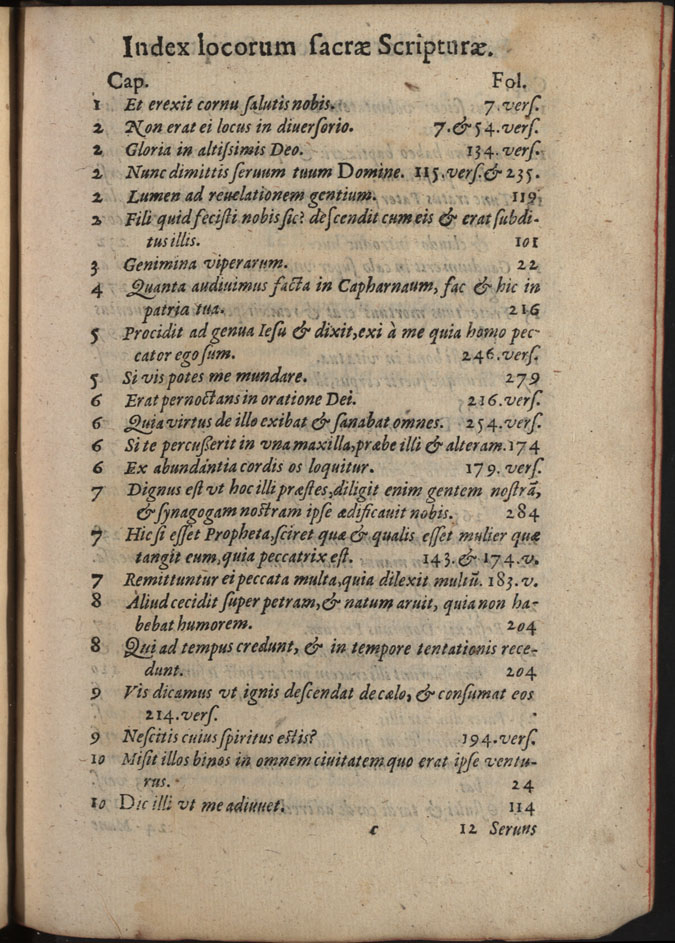 Index locorum sacræ Scripturæ.
Cap. Fol.
1 Et erexit cornu salutis nobis. 7.vers.
2 Non erat ei locus in diuersorio. 7.&54.vers.
2 Gloria in altissimis Deo. 134.vers.
2 Nunc dimittis seruum tuum Domine. 115.vers.& 235.
2 Lumen ad reuelationem gentium. 119
2 Fili quid fecisti nobis sic? descendit cum eis & erat subdi-
tus illis. 101
3 Genimina viperarum. 22
4 Quanta audiuimus facta in Capharnaum, fac & hic in
patria tua. 216
5 Procidit ad genua Iesu & dixit,exi à me quia homo pec-
cator ego sum. 246.vers.
5 Si vis potes me mundare. 279
6 Erat pernoctans in oratione Dei. 216.vers.
6 Quia virtus de illo exibat & sanabat omnes. 254.vers.
6 Si te percusserit in vna maxilla,præbe illi & alteram.174
6 Ex abundantia cordis os loquitur. 179. vers.
7 Dignus est vt hoc illi præstes,diligit enim gentem nostrã,
& synagogam nostram ipse ædificauit nobis. 284
7 Hic si esset Propheta,sciret quæ & qualis esset mulier quæ
tangit eum,quia peccatrix est. 143.& 174.v.
7 Remittuntur ei peccata multa,quia dilexit multũ. 183.v.
8 Aliud cecidit super petram,& natum aruit, quia non ha-
bebat humorem. 204
8 Qui ad tempus credunt, & in tempore tentationis rece-
dunt. 204
9 Vis dicamus vt ignis descendat de cælo, & consumat eos
214.vers.
9 Nescitis cuius spiritus estis? 194.vers.
10 Misit illos binos in omnem ciuitatem quo erat ipse ventu-
rus. 24
10 Dic illi vt me adiuuet. 114
c 12 Seruus